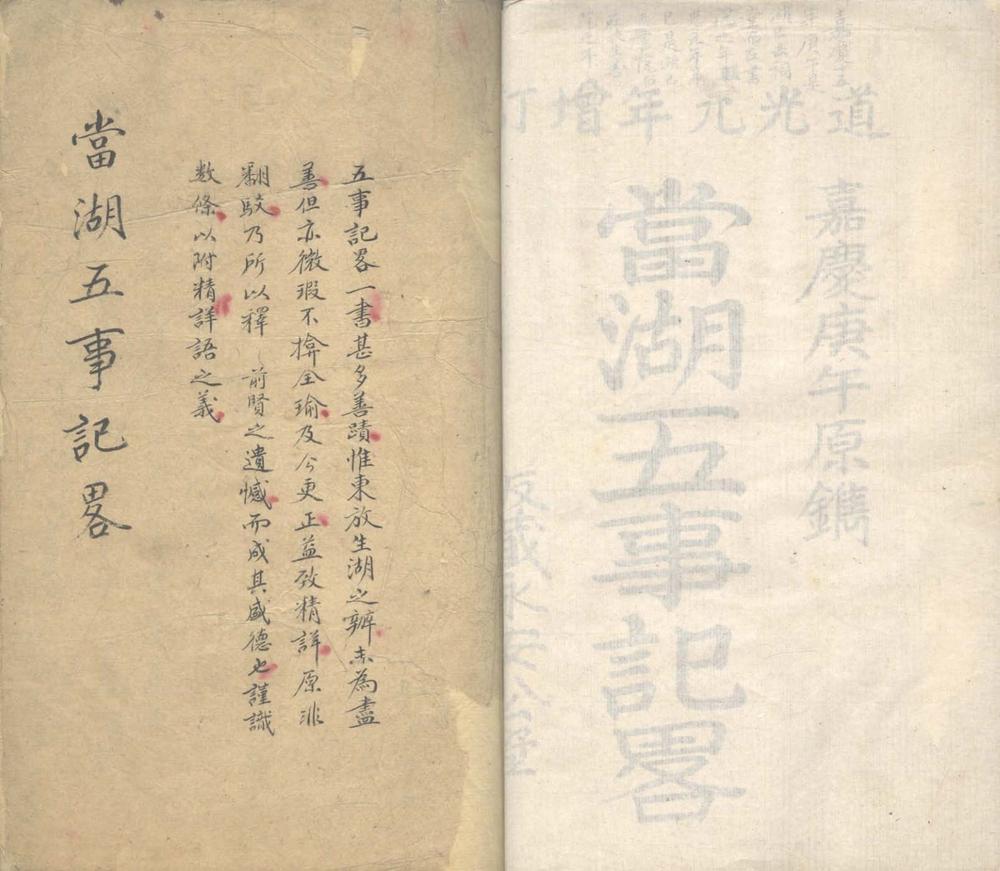 道光元年增訂
嘉慶庚午原鐫
當湖五事記畧
五事記畧一書甚多善蹟惟東放生湖之辨未為盡
善但亦微瑕不揜全瑜及今更正益致精詳原非
翻駁乃所以釋 前賢之遺憾而成其盛德也謹識
数條以附精詳語之義
當湖五事記畧